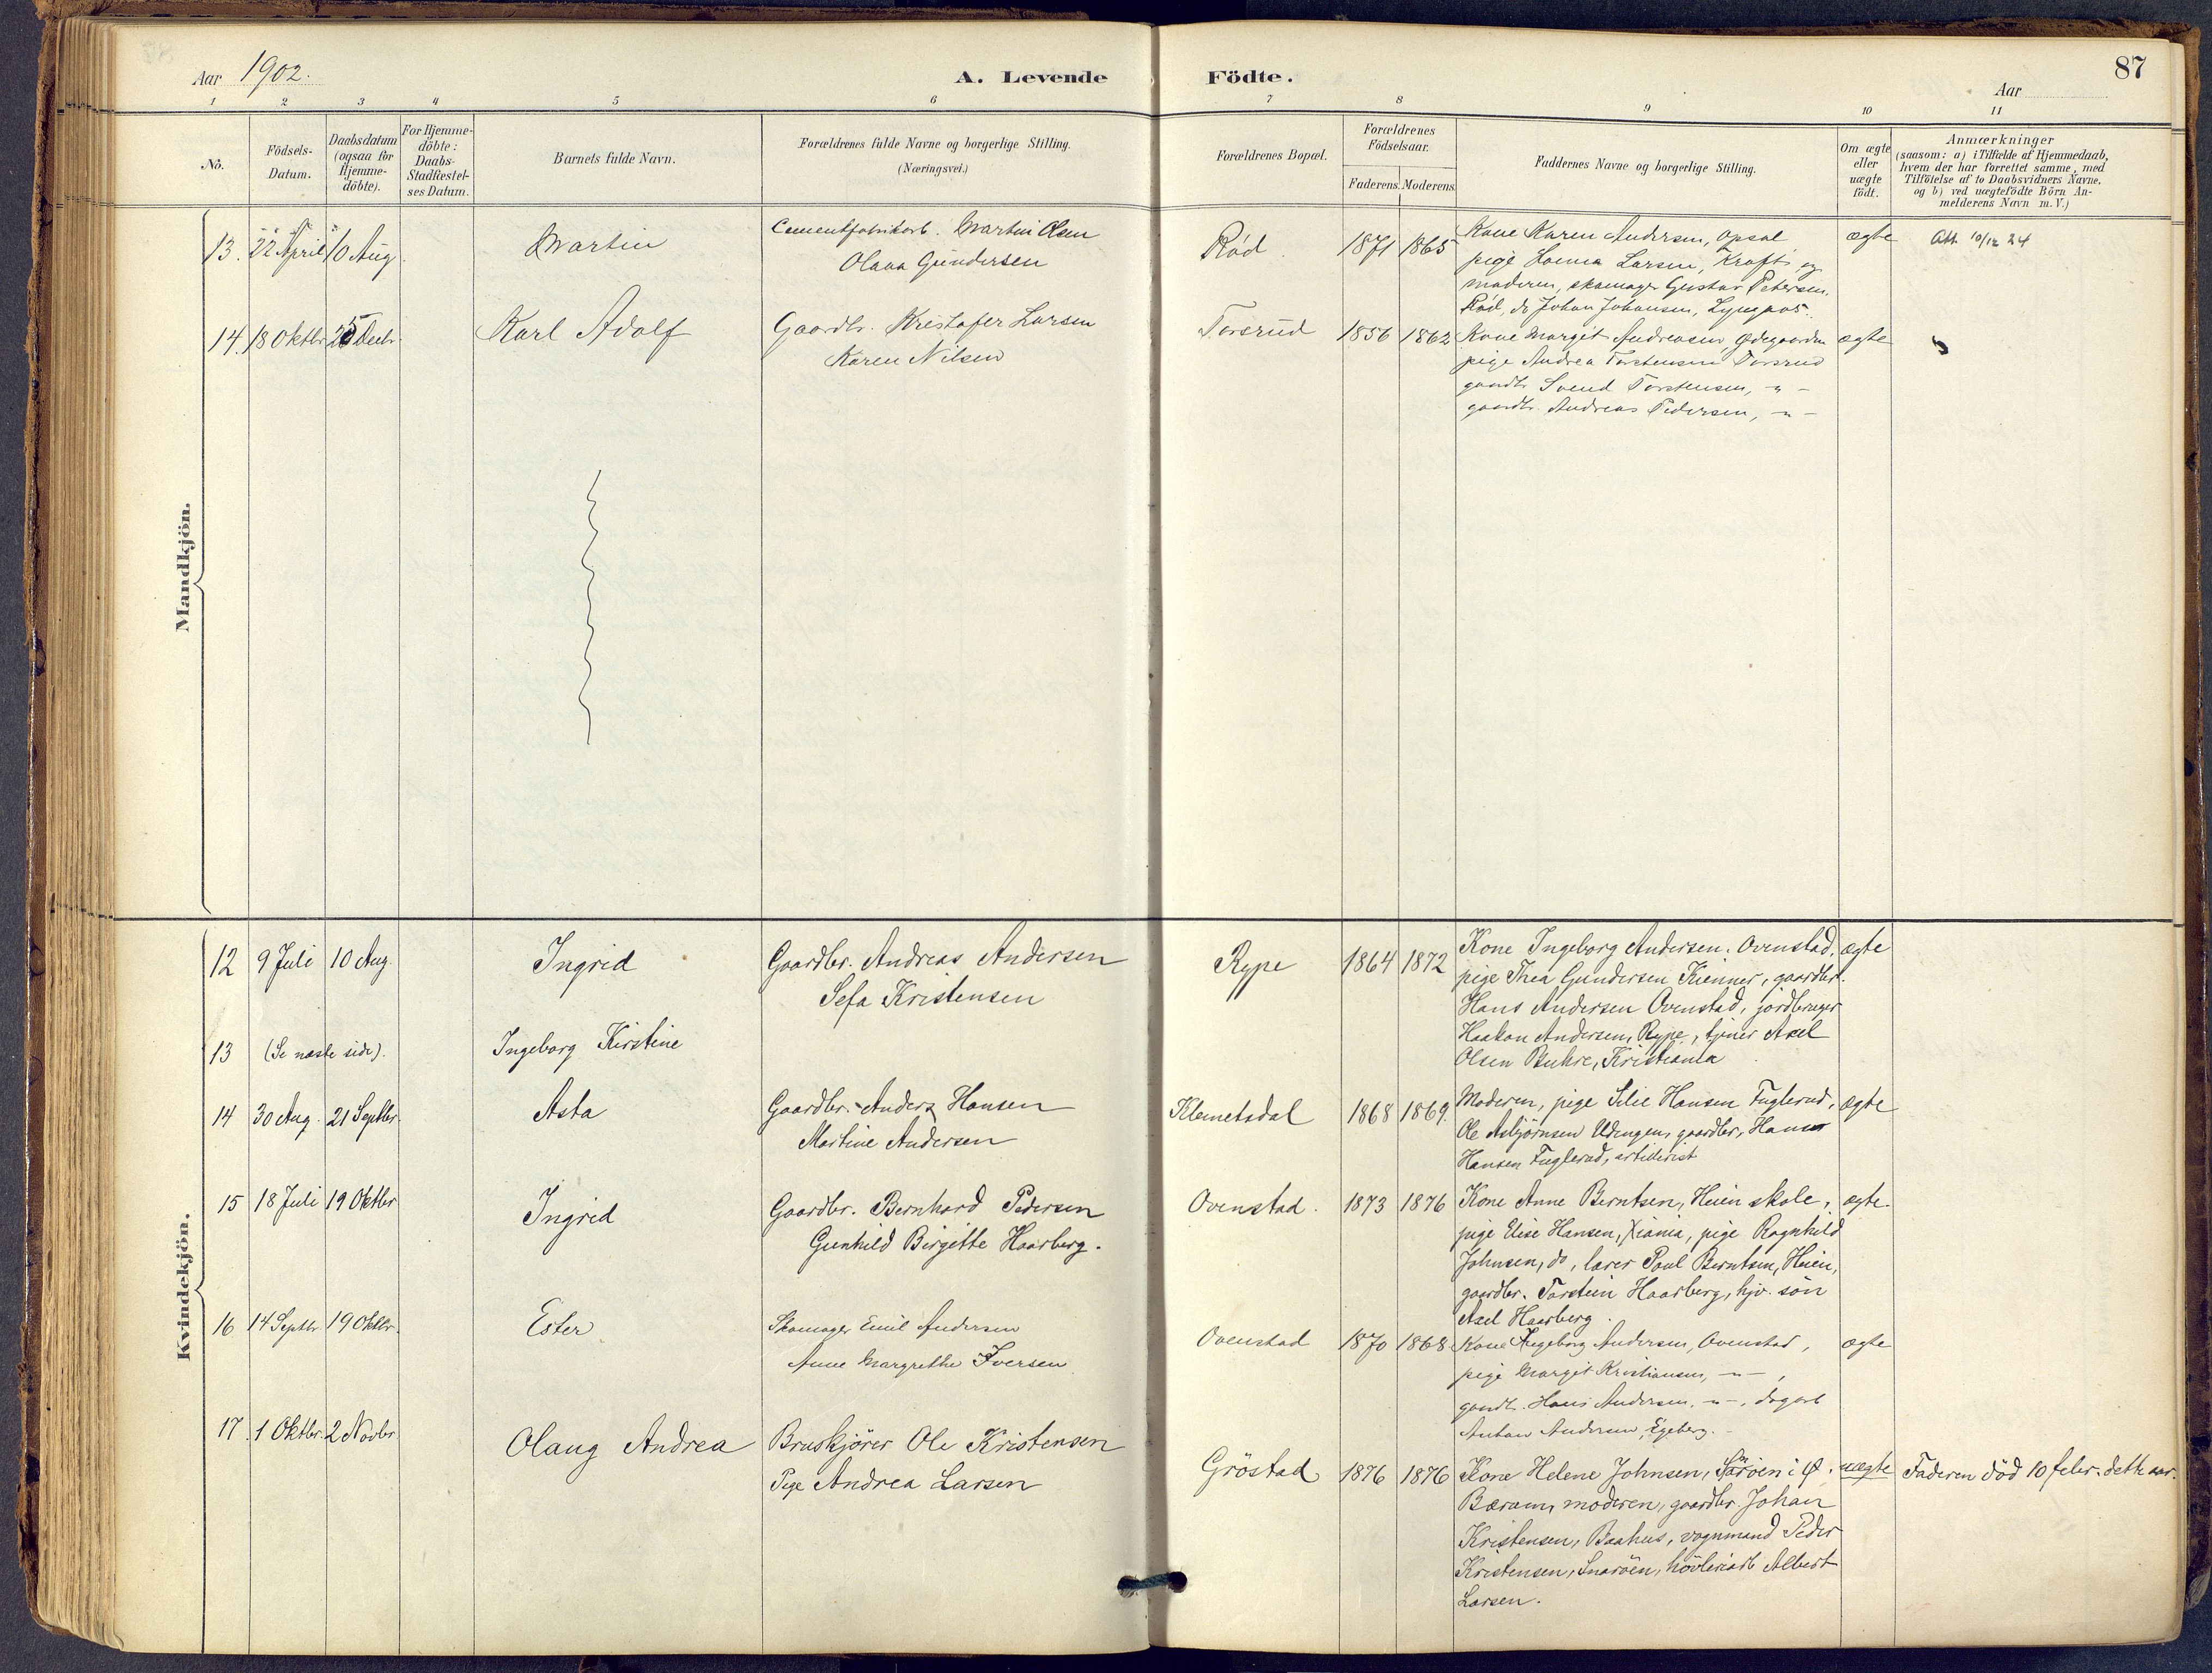 Aar 1902.
A. Levende Födte.
Aar
87
1 2 3 4 5 6 7 8 9 10 11
No.
Födsels-
Datum.
Daabsdatum
(ogsaa for
Hjemme-
döbte).
For Hjemme-
döbte:
Daabs-
Stadfæstel-
ses Datum.
Barnets fulde Navn.
Forældrenes fulde Navne og borgerlige Stilling.
(Næringsvei.)
Forældrenes Bopæl.
Forældrenes
Födselsaar.
Faderens. Moderens.
Faddernes Navne og borgerlige Stilling.
Om ægte
eller
uægte
födt.
Anmærkninger
(saasom: a) i Tilfælde af Hjemmedaab,
hvem der har forrettet samme, med
Tilföielse af to Daabsvidners Navne,
og b) ved uægtefödte Börn An-
melderens Navn m. V.)
Mandkjön.
13. 22 April 10 Aug. Martin
Cementfabrikarb. Martin Olsen
Olava Gundersen
Rød. 1871 1865
Kone Karen Andersen, Opsal
pige Larsen, Kraft og
moderen, skomager Gustav Petersen,
Rød, do Johan Johansen, Lyngaas.
ægte
Att. 10/12 24
14. 18 Oktbr 25 Decbr Karl Adolf
Gaardbr. Kristofer Larsen
Karen Nilsen
Torsrud 1856 1862
Kone Margit Andreasen, Ødegaarden
pige Andrea Torstensen Torsrud
gaardb. Svend Torstensen, -"-
gaardbr. Andreas Pedersen, -"-
ægte
Kvindekjön.
12 9 Juli 10 Aug. Ingrid
Gaardbr. Andreas Andersen
Sefa Kristensen
Rype 1864 1872
Kone Ingeborg Andersen, Ovenstad,
pige Thea Gundersen Kienner, gaardbr.
Hans Andersen Ovenstad, jordbruger
Haakon Andersen, Rype, tjener Axel
Olsen Buhre, Kristiania
ægte
13 (Se næste side). Ingeborg Kirstine
14 30 Aug. 21 Septbr. Asta
Gaardbr. Anders Hansen
Martine Andersen
Klemetsdal 1868 1869.
Moderen, pige Silie Hansen Fuglerud,
Ole Asbjørnsen Udengen, gaardbr, Hans
Hansen Fuglerud, artillerist
ægte
15 18 Juli 19 Oktbr Ingrid
Gaardbr. Bernhard Pedersen
Gunhild Birgitte Haarberg.
Ovenstad. 1873 1876
Kone Anne Berntsen, Heien skole,
pige Elise Hansen, Xiania, pige Ragnhild
Johnsen, do, lærer Paul Berntsen, Heien,
gaardbr. Torstein Haarberg, hjv. sön
Axel Haarberg.
ægte
16 14 Septbr 19 Oktbr. Ester
Skomager Emil Andersen
Anne Margrethe Iversen
Ovenstad 1870 1868
Kone Ingeborg Andersen, Ovenstad,
pige Margit Kristiansen, -"-,
gaardb. Hans Andersen, -"-, dagarb
Anton Andersen, Egeberg.
ægte
17. 1 Oktbr. 2 Novbr Olaug Andrea
Bruskjörer Ole Kristensen
Pige Andrea Larsen
Gröstad 1876 1876
Kone Helene Johnsen, Snaröen i Ø.
Bærum, moderen, gaardbr. Johan
Kristensen, Baahus, vognmand Peder
Kristensen, Snaröen, hövleriarb Albert
Larsen.
uægte
Faderen död 10 febr. dette aar.